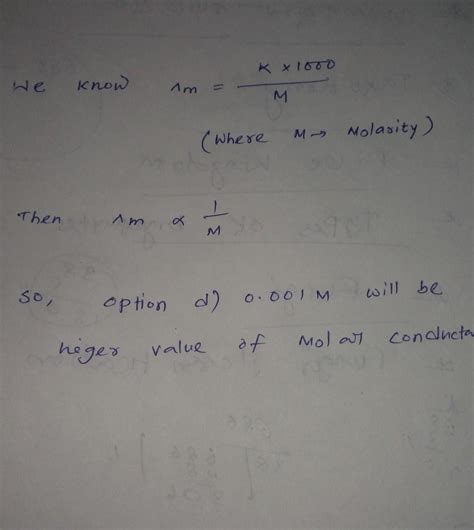 We know Λm = K × 1000 / M
(Where M → Molarity)
Then Λm ∝ 1 / M
So, option d) 0.001 M will be
higer value of Molar conducta